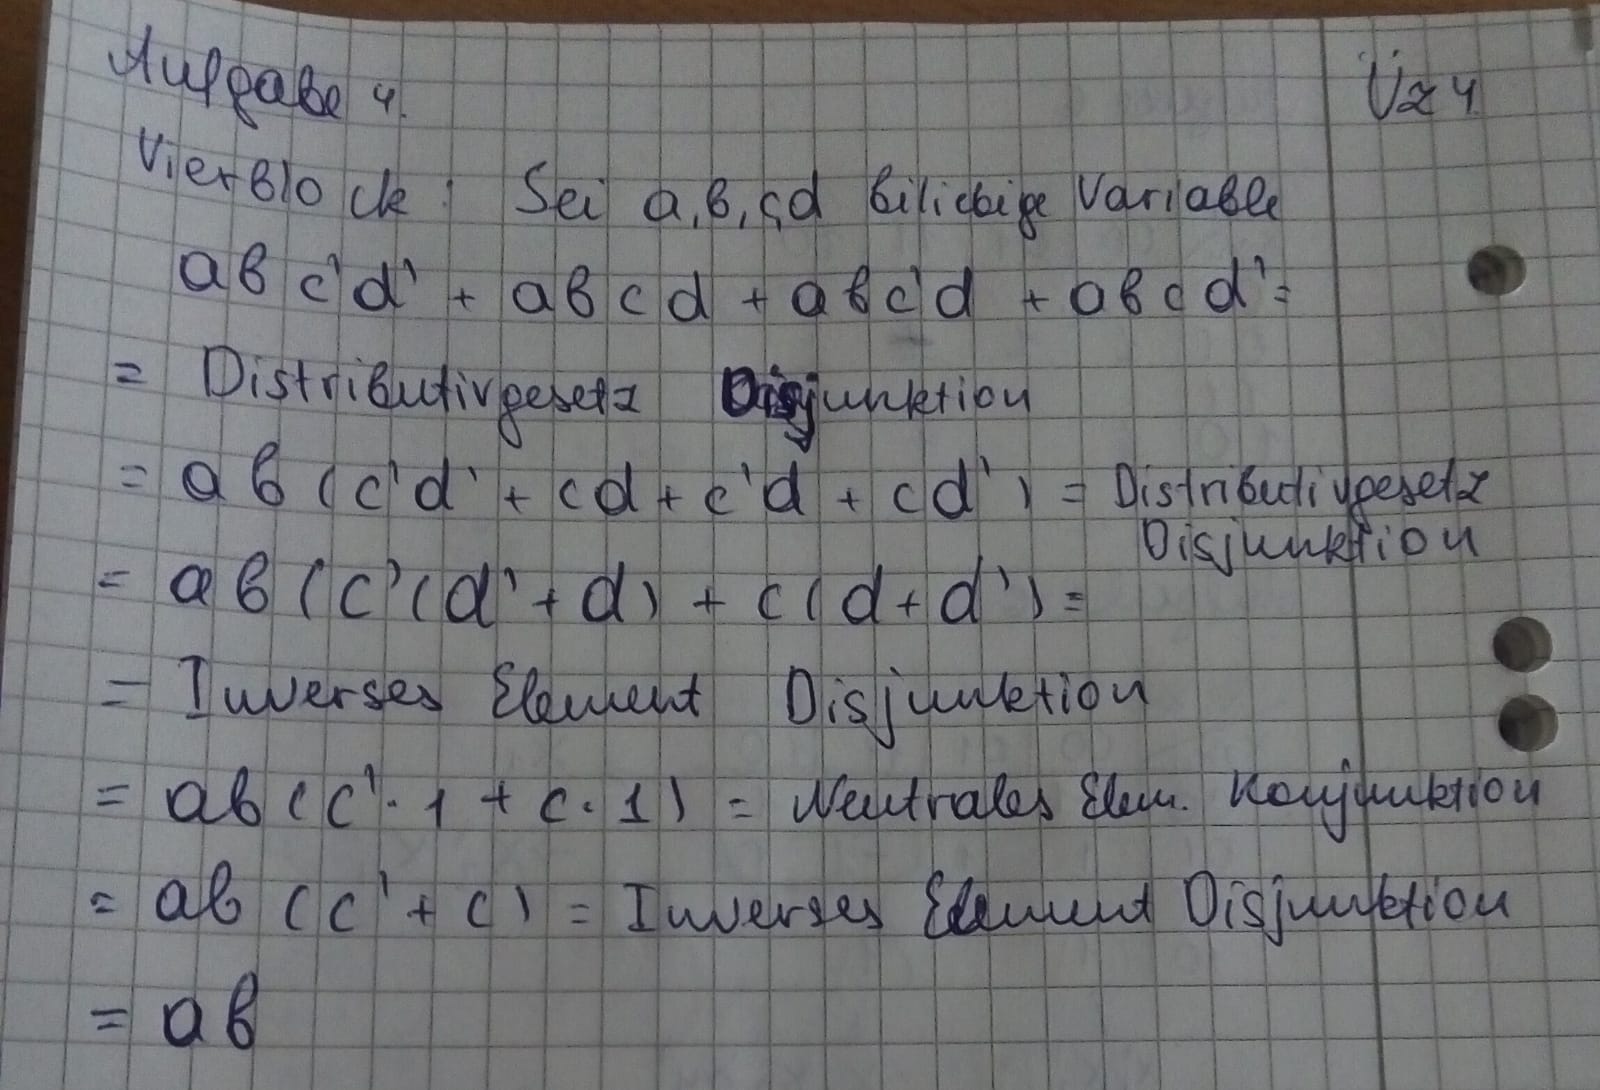 Aufgabe 4.
Üz 4
Vierblock: Sei a,b,c,d biliebige Variable
abc'd' + abcd + abc'd + abcd' =
= Distributivgesetz Disjunktion
= ab(c'd' + cd + c'd + cd') = Distributivgesetz
Disjunktion
= ab(c'(d' + d) + c(d + d') =
= Inverses Element Disjunktion
= ab(c'·1 + c·1) = Neutrales Elem. Konjunktion
= ab(c' + c) = Inverses Element Disjunktion
= ab